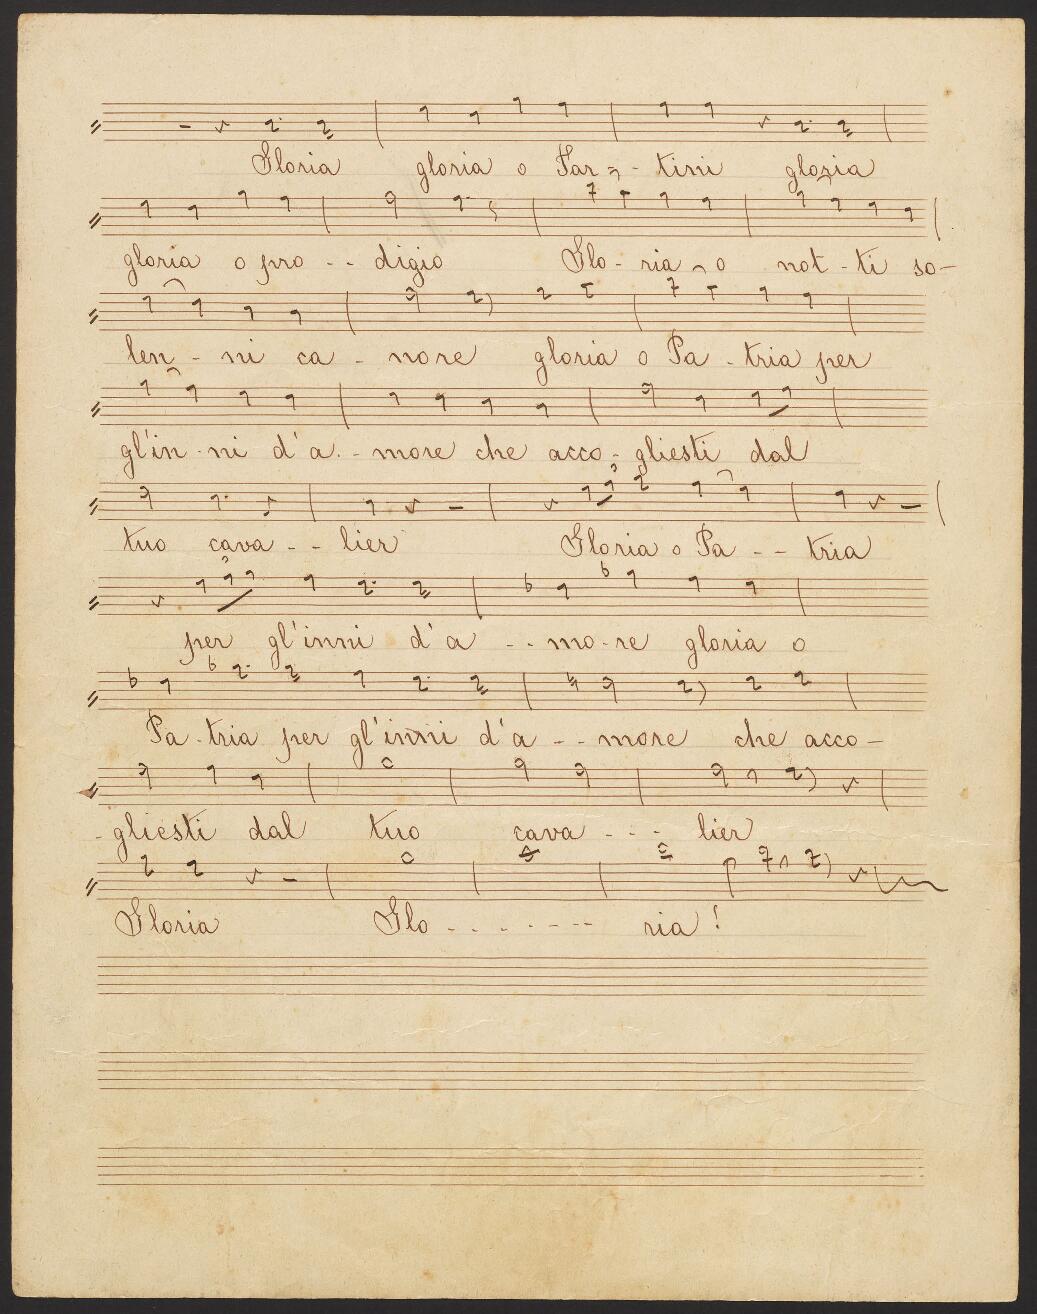 Gloria gloria o Tar - - tini gloria
gloria o pro - - digio Glo - ria o not - ti so -
len - ni ca - nore gloria o Pa - tria per
gl'in - ni d'a - - more che acco - gliesti dal
tuo cava - - lier Gloria o Pa - - tria
per gl'inni d'a - - mo - re gloria o
Pa - tria per gl'inni d'a - - more che acco -
- gliesti dal tuo cava - - - lier
Gloria Glo - - - - - - - ria !